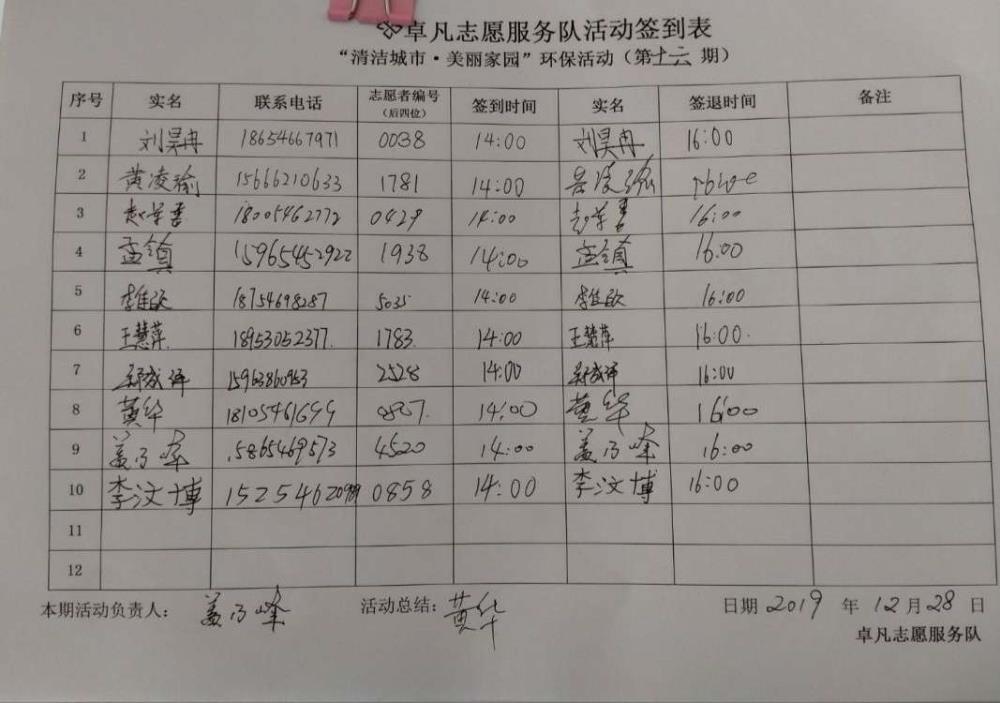 卓凡志愿服务队活动签到表
“清洁城市·美丽家园”环保活动（第十六 期）
序号 实名 联系电话 志愿者编号（后四位） 签到时间 实名 签退时间 备注
1 刘昊冉 18654667971 0038 14:00 刘昊冉 16:00
2 黄凌瑜 15666210633 1781 14:00
3 18005462772 0429 14:00 16:00
4 孟镇 15965452922 1938 14:00 孟镇 16:00
5 李佳欣 18754698287 5035 14:00 李佳欣 16:00
6 王慧萍 18953052377 1783 14:00 王慧萍 16:00
7 15963860963 2528 14:00 16:00
8 黄华 18105461699 0807 14:00 黄华 16:00
9 姜乃峰 15865469573 4520 14:00 姜乃峰 16:00
10 李汶博 0858 14:00 李汶博 16:00
11
12
本期活动负责人： 姜乃峰 活动总结： 黄华 日期 2019 年 12 月 28 日
卓凡志愿服务队